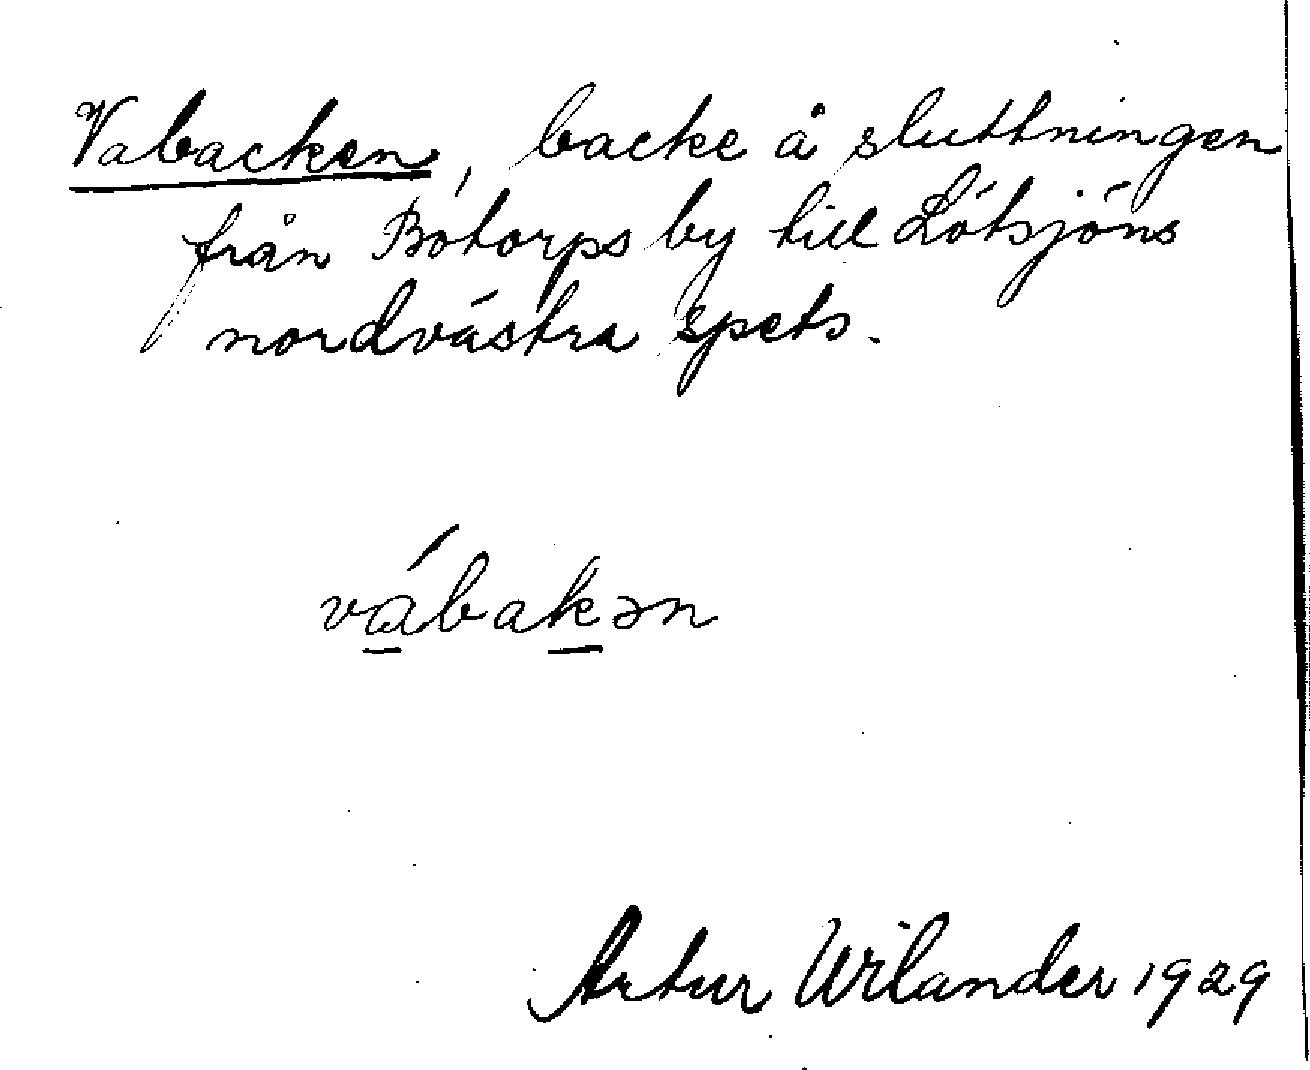 Vabacken, backe å sluttningen
från Bótorps by till Lótsjóns
nordvástra spets.
vábakən
Artur Wilander 1929